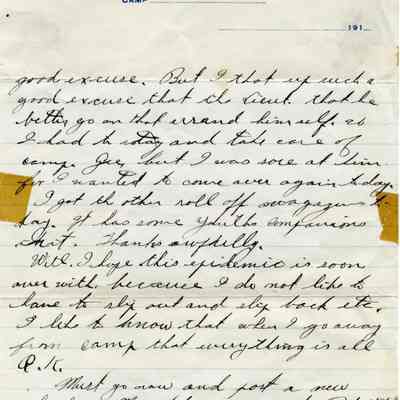 CAMP
191
good excuse. But I that up such a
good excuse that the Lieut. that he
better go on that errand himself. as
I had to stay and take care of
camp. Gee, but I was sore at him
for I wanted to come over again today.
I got the other roll off magazines to-
day. It has some Youths Companions
in it. Thanks awfully.
Well I hope this epidemic is soon
over with because I do not like to
have to slip out and slip back etc.
I like to know that when I go away
from camp that everything is all
O.K.
Must go now and post a new